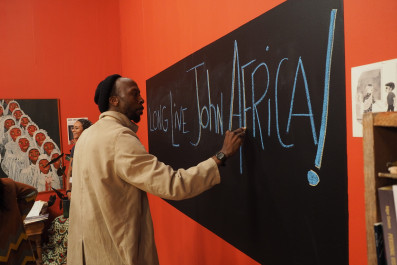 LONG LIVE JOHN AFRICA!